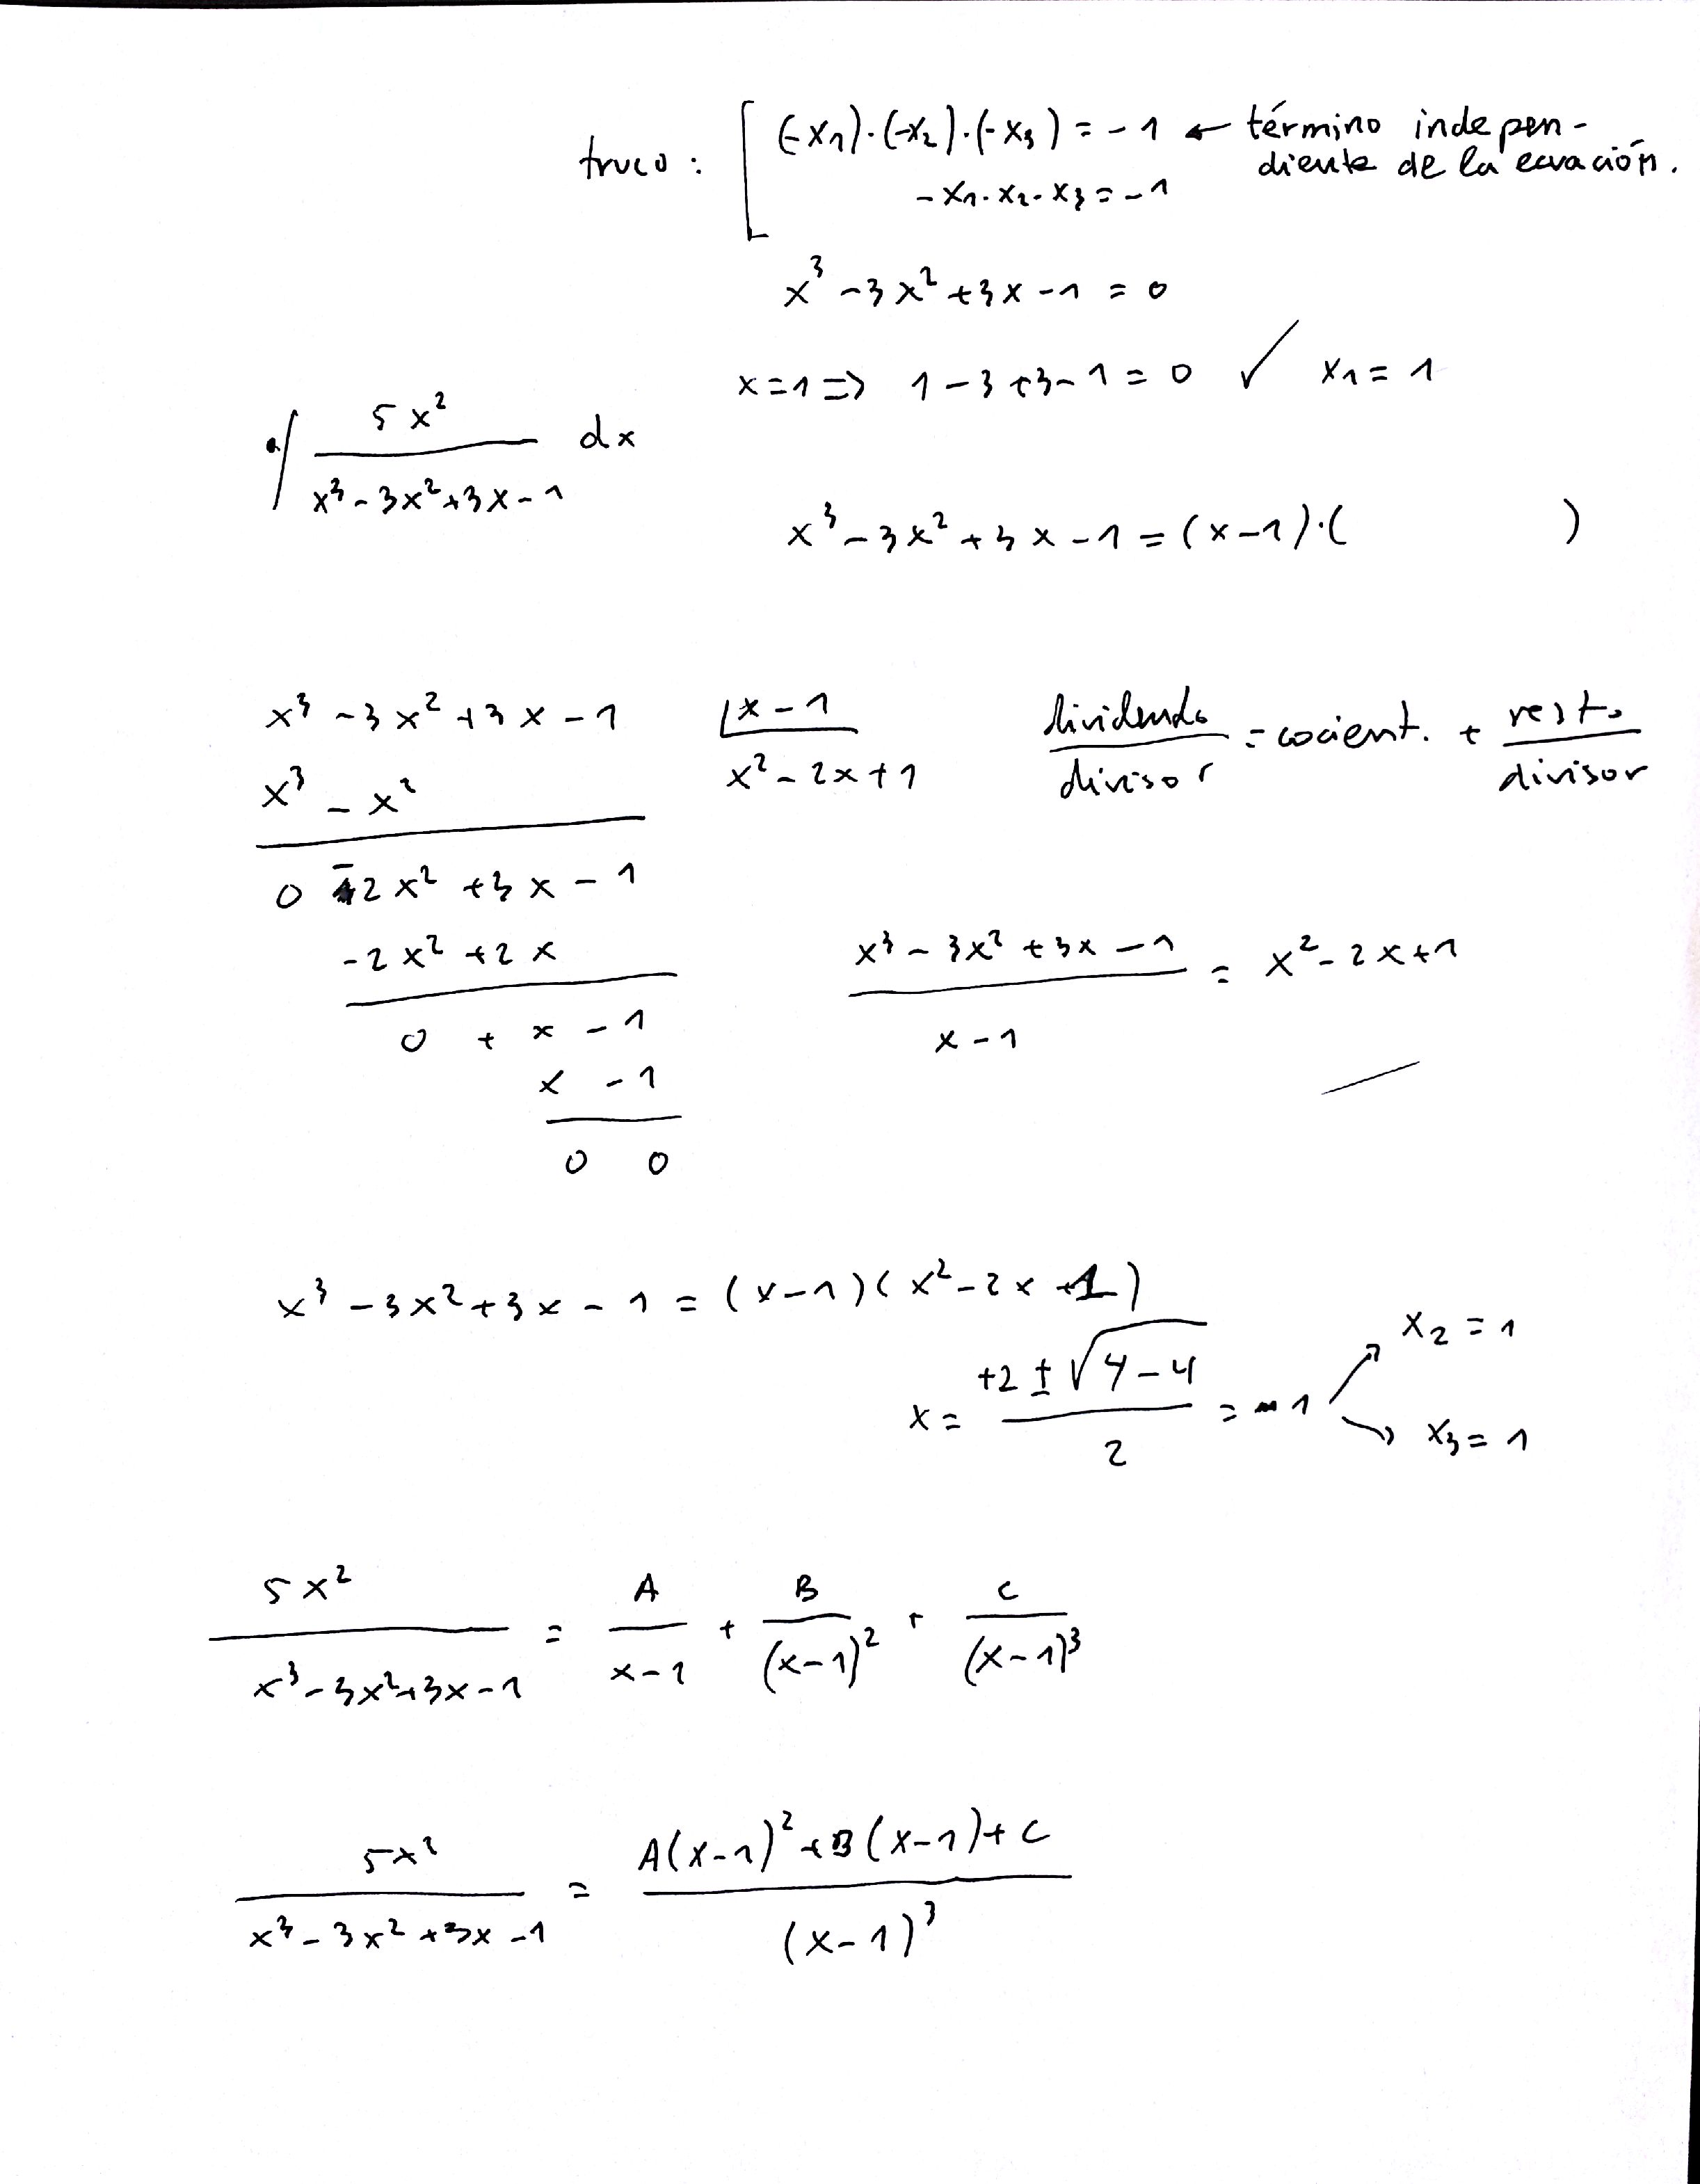 truco: (-x₁)·(-x₂)·(-x₃) = -1 ← término indepen-
diente de la ecuación.
-x₁·x₂·x₃ = -1
x³ -3x² +3x -1 = 0
x=1 => 1-3+3-1 = 0 ✓ x₁ = 1
∫ 5x² / (x³-3x²+3x-1) dx
x³-3x²+3x-1 = (x-1)·( )
x³ -3x² +3x -1 | x-1
x³ - x² x²-2x+1
dividendo / divisor = cocient. + resto / divisor
0 -2x² +3x -1
-2x² +2x
x³-3x²+3x-1 / x-1 = x²-2x+1
0 + x -1
x -1
0 0
x³-3x²+3x-1 = (x-1)(x²-2x+1)
x = +2 ± √4-4 / 2 = 1 x₂ = 1
x₃ = 1
5x² / x³-3x²+3x-1 = A / x-1 + B / (x-1)² + C / (x-1)³
5x² / x³-3x²+3x-1 = A(x-1)²+B(x-1)+C / (x-1)³